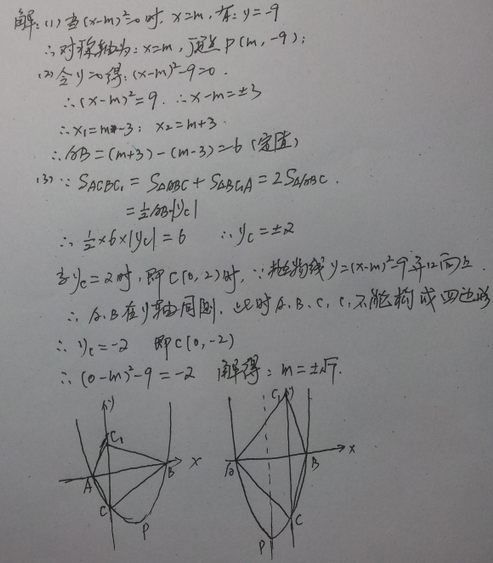 解:(1)当(x-m)²=0时,x=m,有:y=-9
∴对称轴为:x=m,顶点P(m,-9);
(2)令y=0得:(x-m)²-9=0.
∴(x-m)²=9.∴x-m=±3
∴x₁=m-3;x₂=m+3.
∴AB=(m+3)-(m-3)=6(定值)
(3)∵S_ACBC₁=S△ABC+S△BC₁A=2S△ABC.
=½AB·|yc|
∴½×6×|yc|=6 ∴yc=±2
当yc=2时,即C(0,2)时,∵抛物线y=(x-m)²-9开口向上.
∴A、B在y轴同侧,此时A、B、C、C₁不能构成四边形
∴yc=-2 即C(0,-2)
∴(0-m)²-9=-2 解得:m=±√7.
y C₁ A B x C P
C₁ y A B x C P